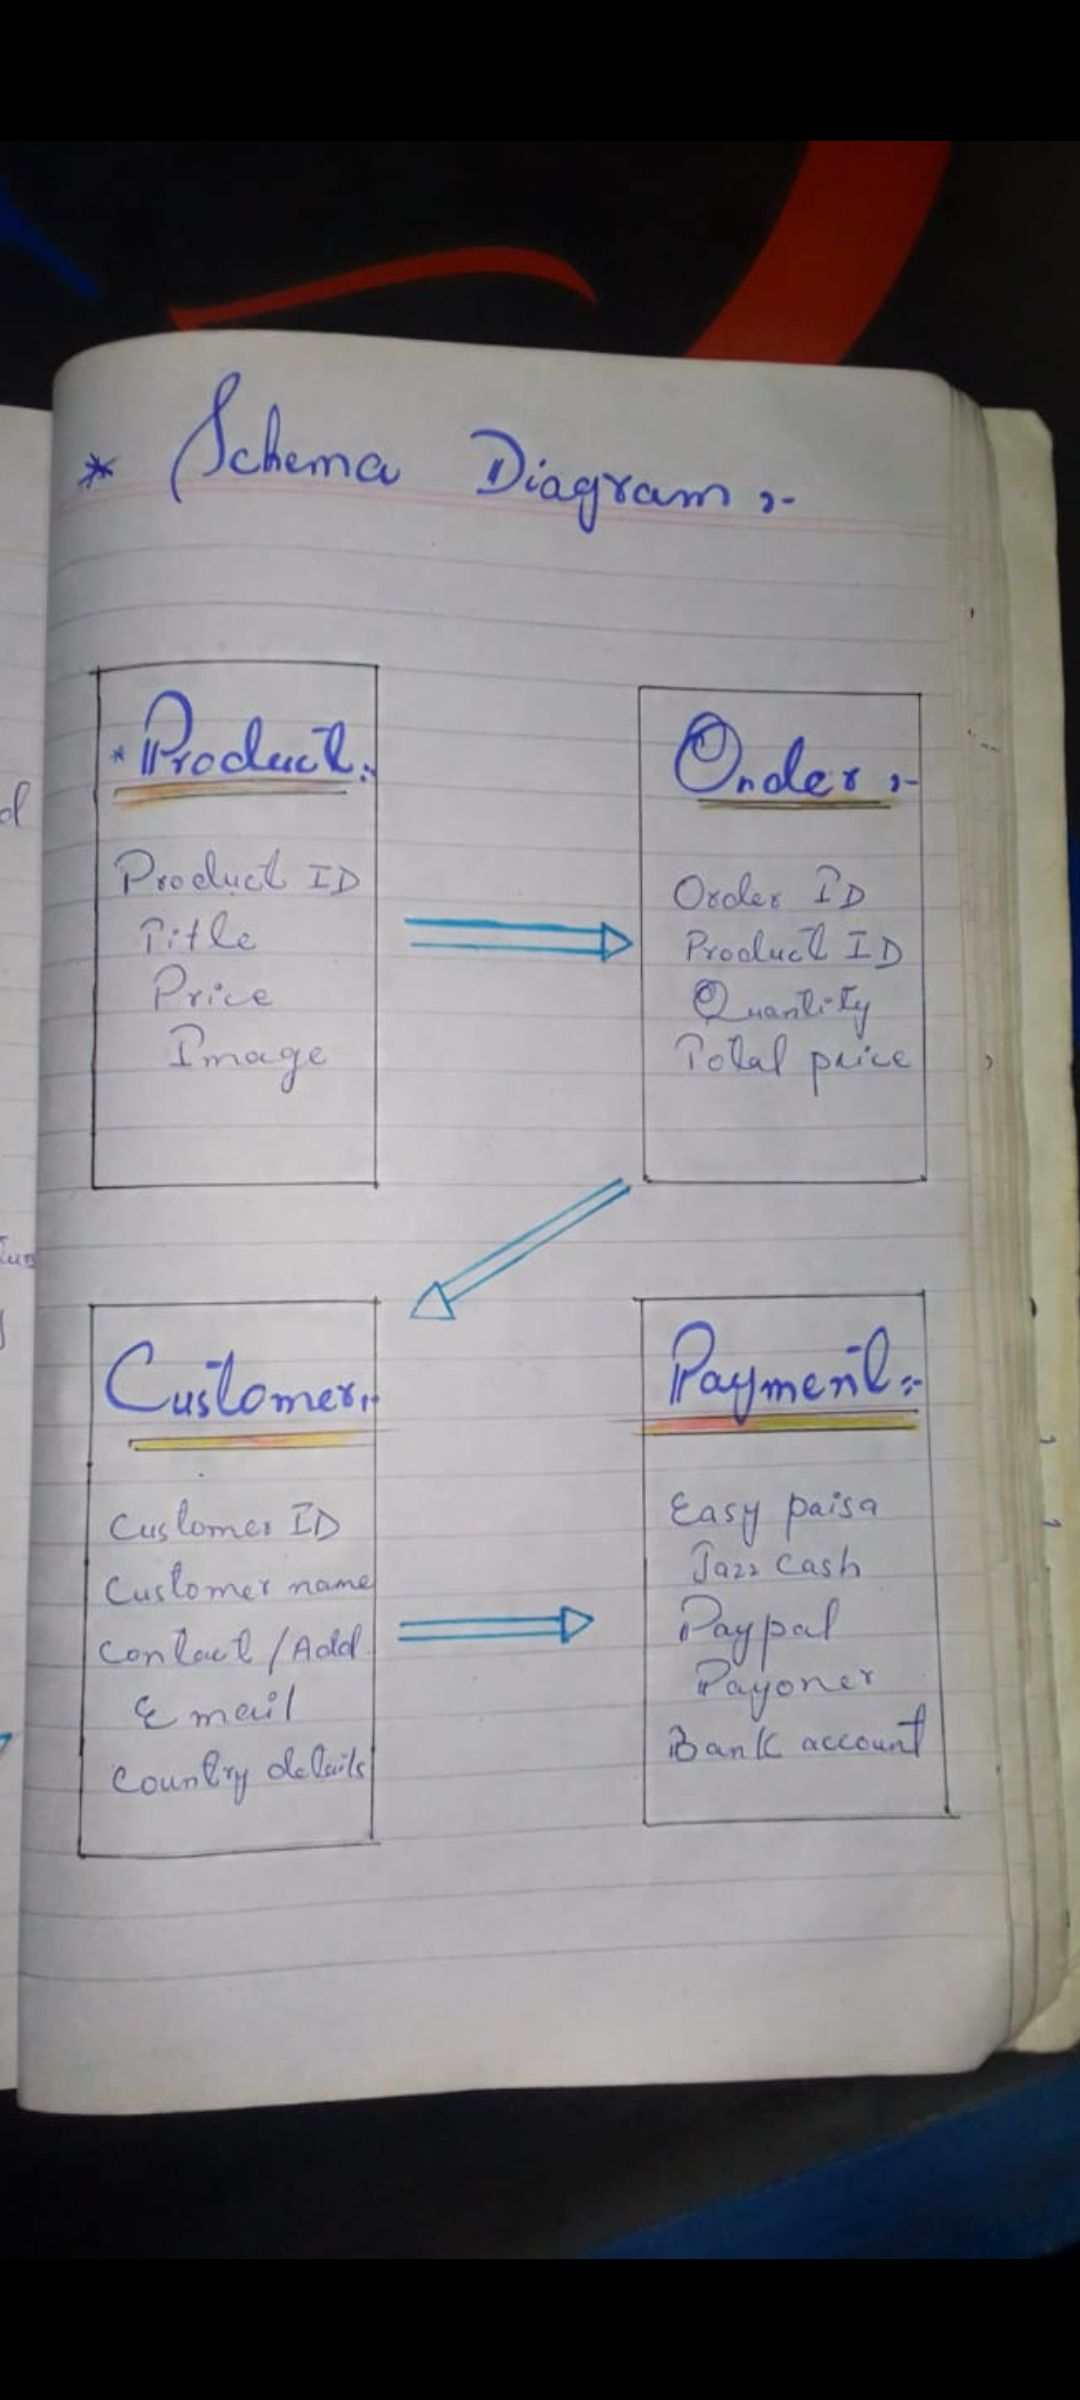 * Schema Diagram :-
* Product :-
Product ID
Title
Price
Image
Order :-
Order ID
Product ID
Quantity
Total price
Customer :-
Customer ID
Customer name
Contact / Add
E mail
Country details
Payment :-
Easy paisa
Jazz Cash
Paypal
Payoner
Bank account